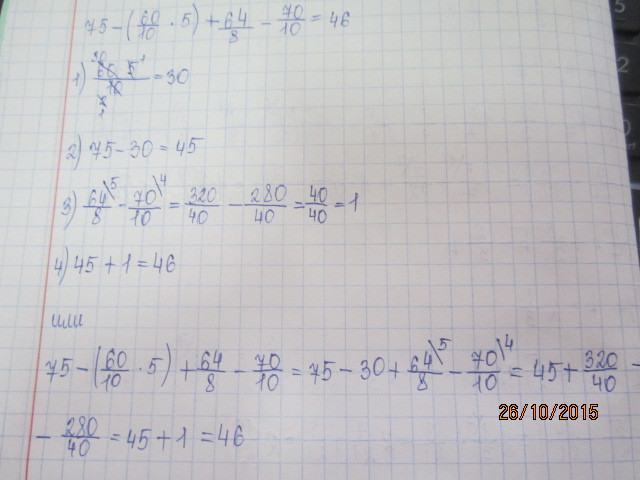 75 - (60/10 · 5) + 64/8 - 70/10 = 46
1) 60 · 5/10 = 30
2) 75 - 30 = 45
3) 64\5/8 - 70\4/10 = 320/40 - 280/40 = 40/40 = 1
4) 45 + 1 = 46
или
75 - (60/10 · 5) + 64/8 - 70/10 = 75 - 30 + 64\5/8 - 70\4/10 = 45 + 320/40 -
- 280/40 = 45 + 1 = 46
26/10/2015